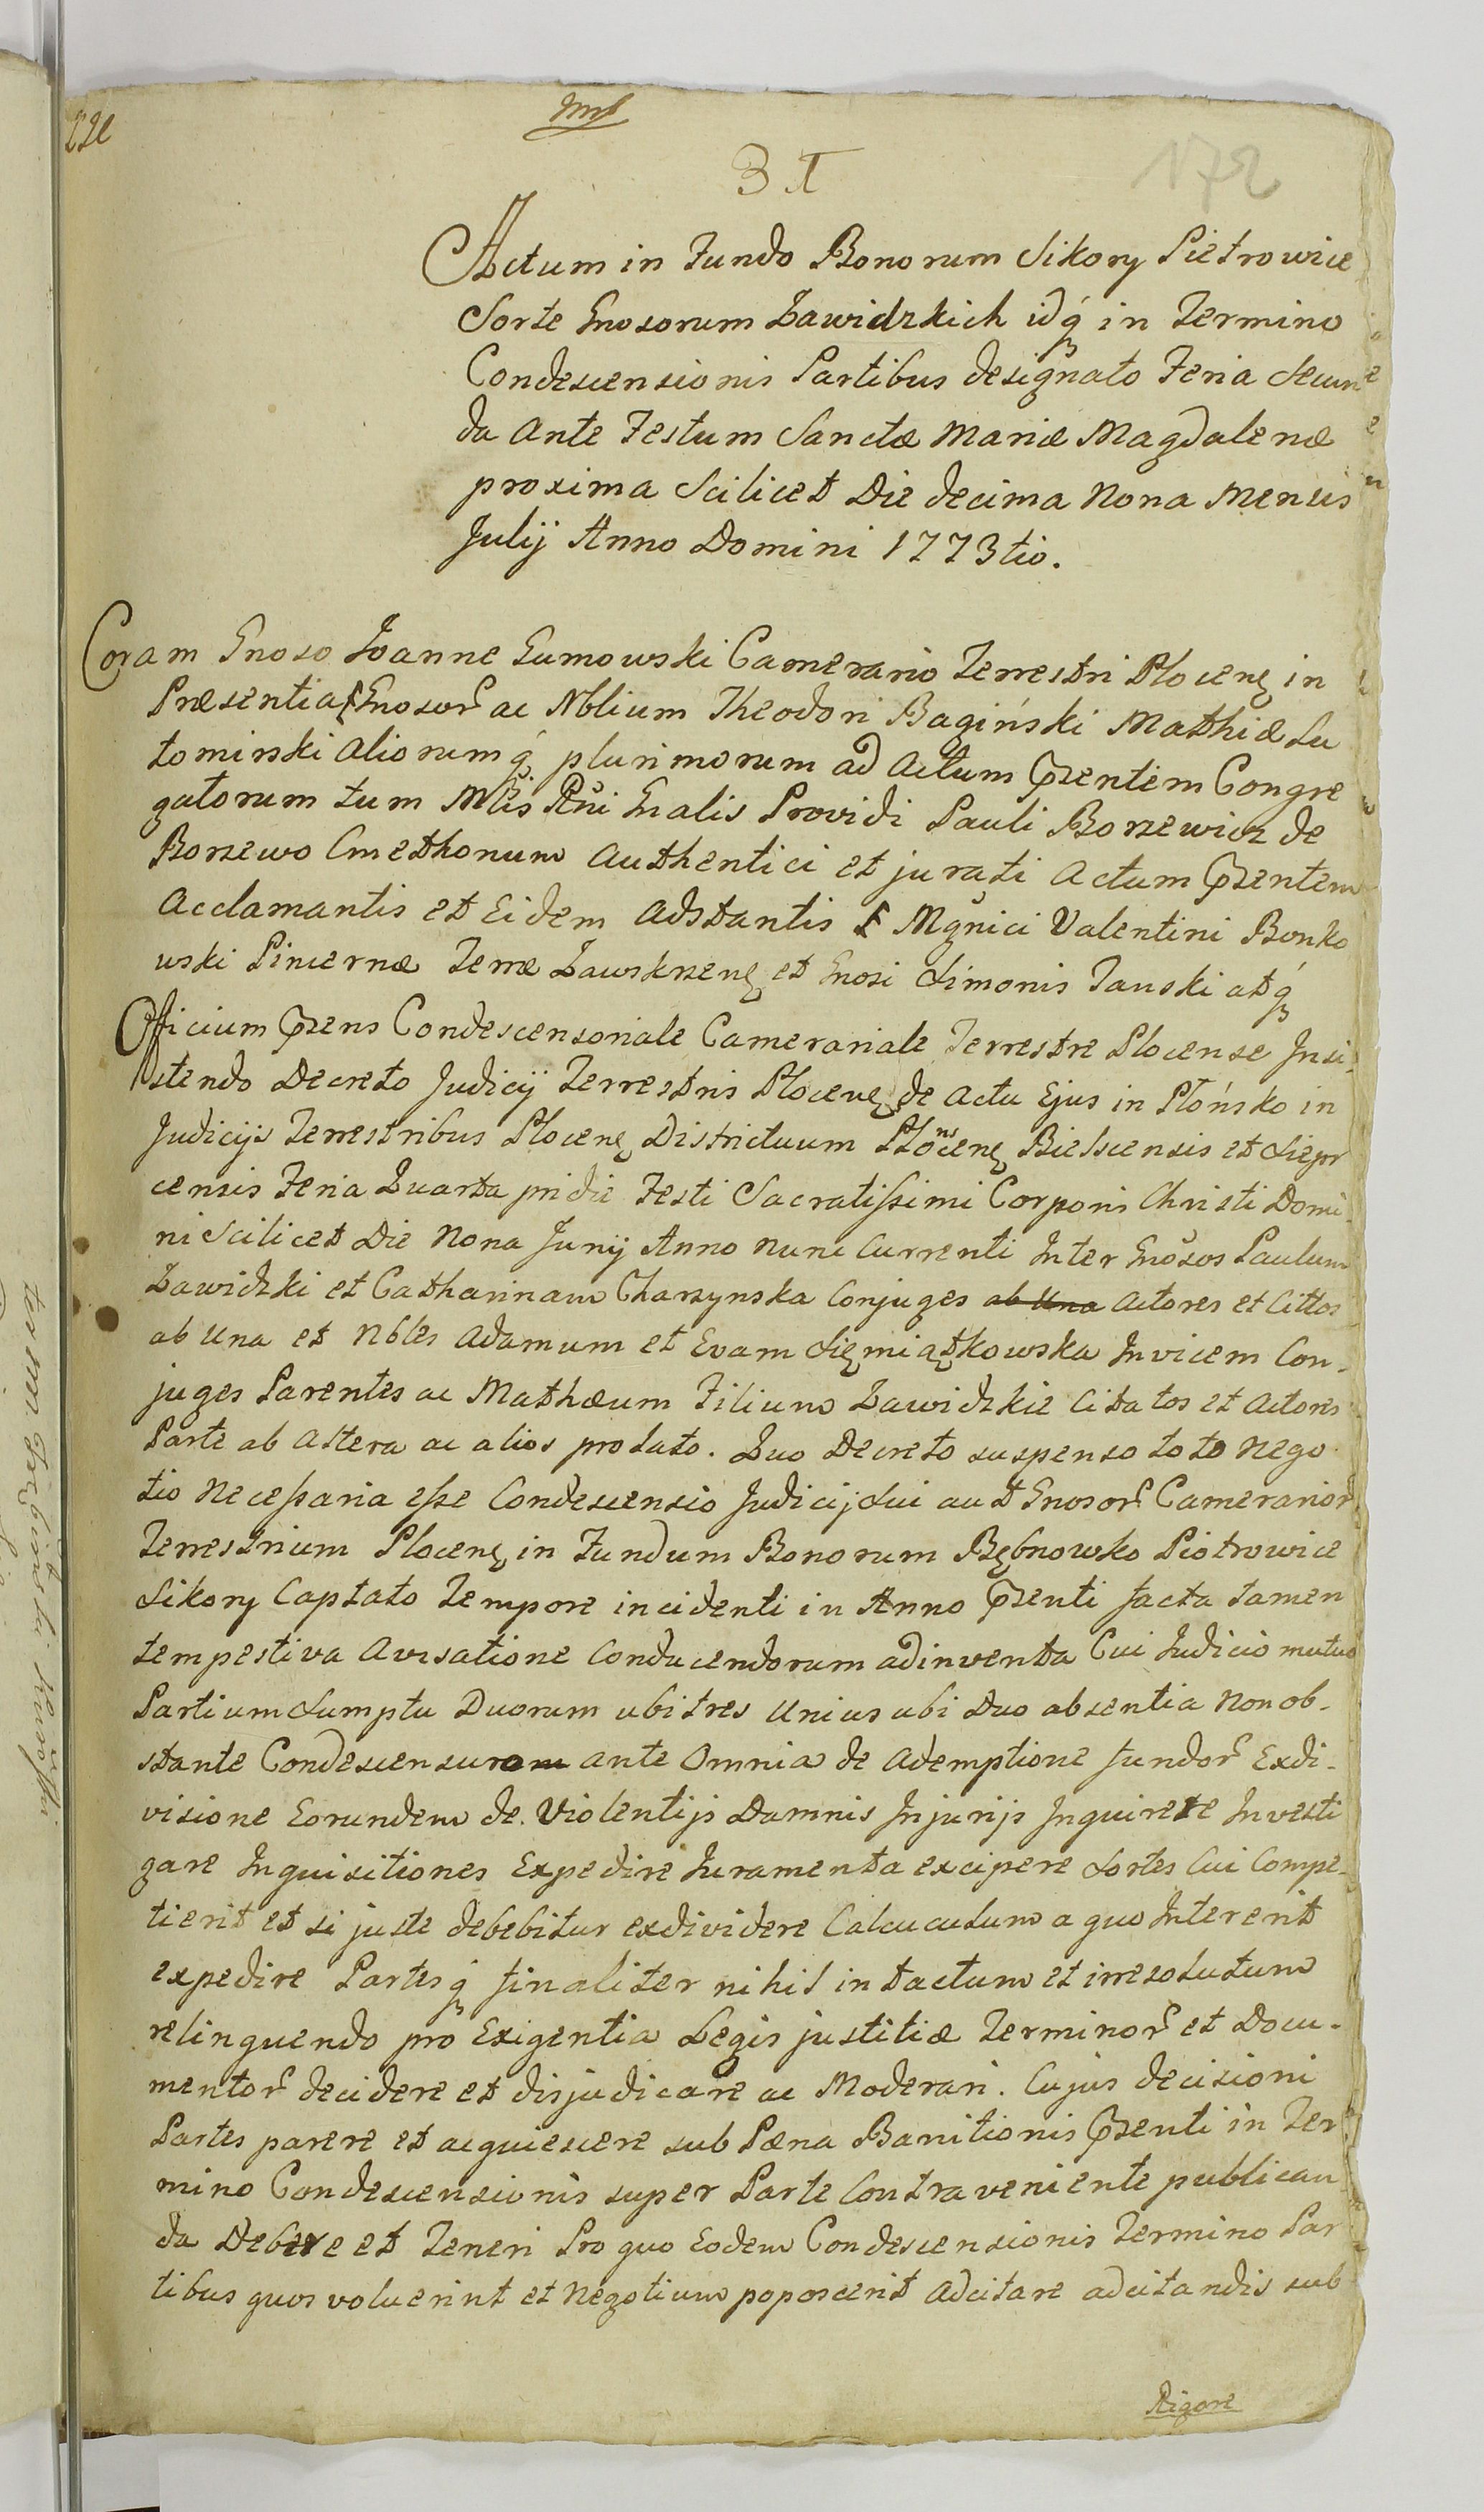 172
Actum in Fundo Bonorum Sikory Pietrowice
Sorte Gnosorum Zawidzkich idq́ in Termino
Condescensionis Partibus designato Feria Secun
da Ante Festum Sanctæ Mariæ Magdalenæ
proxima Scilicet Die decima Nona Mensis
Julij Anno Domini 1773tio.
Coram Gnoso Joanne Gumowski Camerario Terrestri Plocenę in
Præsentia Gnosor ac Nblium Theodori Bagiński Mathiæ Lu
tomirski Aliorumq́ plurimorum ad Actum Pzentem Congre
gatorum tum Mlis Rni Gnalis Providi Pauli Borzewicz de
Borzewo Cmethonum Authentici et jurati Actum Pzentem
Acclamantis et Eidem Adstantis Mgnici Valentini Bonko
wski Pincernæ Terræ Zawskrzenę et Gnosi Simonis Tanski atq́
Officium Pzens Condescensoriale Camerariale Terrestre Plocense Insi-
stendo Decreto Judicij Terrestris Plocenę de Actu Ejus in Płońsko in
Judicijs Terrestribus Plocenę Districtuum Plonscenę Bielscensis et Sierpr
censis Feria Quarta pridie Festi Sacratissimi Corporis Christi Domi-
ni Scilicet Die Nona Junij Anno Nunc Currenti Inter Gnosos Paulum
Zawidzki et Catharinam Charzynska Conjuges ab Una Actores et Cittos
ab Una et Nbles Adamum et Evam Sięmiątkowska Invicem Con-
juges Parentes ac Mathæum Filium Zawidzkie Citatos et Actores
Parte ab Altera ac alios prolato. Quo Decreto suspenso toto Nego
tio Necessaria esse Condescensio Judicij Sui aut Gnosor Camerarior
Terrestrium Plocenę in Fundum Bonorum Bębnowko Piotrowice
Sikory Captato Tempore incidenti in Anno Pzenti facta tamen
tempestiva Avisatione Conducendorum adinventa Cui Judicio mutuo
Partium Sumptu Duorum ubi tres Unius ubi Duo absentia Non ob-
stante Condescensuro ante Omnia de Ademptione fundor Exdi-
visione Eorundem de Violentijs Damnis Injurijs Inquirere Investi
gare Inquisitiones Expedire Juramenta excipere Sortes Cui Compe-
tierit et si juste debebitur exdividere Calcuculum a quo Intererit
expedire Partesq́ finaliter nihil intactum et irresolutum
relinquendo pro Exigentia Legis justitiæ Terminor et Docu-
mentor decidere et disjudicare ac Moderari. Cujus decisioni
Partes parere et acquiescere sub Pæna Banitionis Pzenti in Ter
mino Condescensionis super Parte Contraveniente publican
da Debere et Teneri Pro quo Eodem Condescensionis Termino Par
tibus quos voluerint et Negotium poposcerit Adcitare adcitandis sub
Rigore